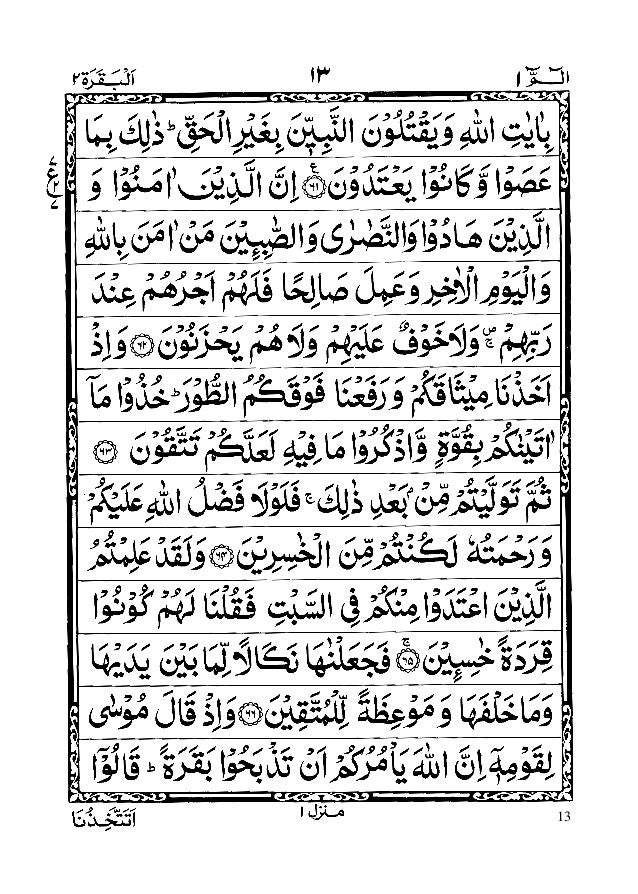 الٓمّٓ ١ ١٣ اَلْبَقَرَة ٢
بِاٰیٰتِ اللّٰهِ وَیَقْتُلُوْنَ النَّبِیّٖنَ بِغَیْرِ الْحَقِّ ؕ ذٰلِكَ بِمَا
عَصَوْا وَّ كَانُوْا یَعْتَدُوْنَ ﴿۶۱﴾ اِنَّ الَّذِیْنَ اٰمَنُوْا وَ
الَّذِیْنَ هَادُوْا وَالنَّصٰرٰی وَالصّٰبِـِٕیْنَ مَنْ اٰمَنَ بِاللّٰهِ
وَالْیَوْمِ الْاٰخِرِ وَعَمِلَ صَالِحًا فَلَهُمْ اَجْرُهُمْ عِنْدَ
رَبِّهِمْ ۪ۚ وَلَا خَوْفٌ عَلَیْهِمْ وَلَا هُمْ یَحْزَنُوْنَ ﴿۶۲﴾ وَاِذْ
اَخَذْنَا مِیْثَاقَكُمْ وَرَفَعْنَا فَوْقَكُمُ الطُّوْرَ ؕ خُذُوْا مَاۤ
اٰتَیْنٰكُمْ بِقُوَّةٍ وَّاذْكُرُوْا مَا فِیْهِ لَعَلَّكُمْ تَتَّقُوْنَ ﴿۶۳﴾
ثُمَّ تَوَلَّیْتُمْ مِّنْۢ بَعْدِ ذٰلِكَ ۚ فَلَوْلَا فَضْلُ اللّٰهِ عَلَیْكُمْ
وَرَحْمَتُهٗ لَكُنْتُمْ مِّنَ الْخٰسِرِیْنَ ﴿۶۴﴾ وَلَقَدْ عَلِمْتُمُ
الَّذِیْنَ اعْتَدَوْا مِنْكُمْ فِی السَّبْتِ فَقُلْنَا لَهُمْ كُوْنُوْا
قِرَدَةً خٰسِـِٕیْنَ ﴿۶۵﴾ۚ فَجَعَلْنٰهَا نَكَالًا لِّمَا بَیْنَ یَدَیْهَا
وَمَا خَلْفَهَا وَ مَوْعِظَةً لِّلْمُتَّقِیْنَ ﴿۶۶﴾ وَاِذْ قَالَ مُوْسٰی
لِقَوْمِهٖۤ اِنَّ اللّٰهَ یَاْمُرُكُمْ اَنْ تَذْبَحُوْا بَقَرَةً ؕ قَالُوْۤا
منزل ١
اَتَتَّخِذُنَا
13